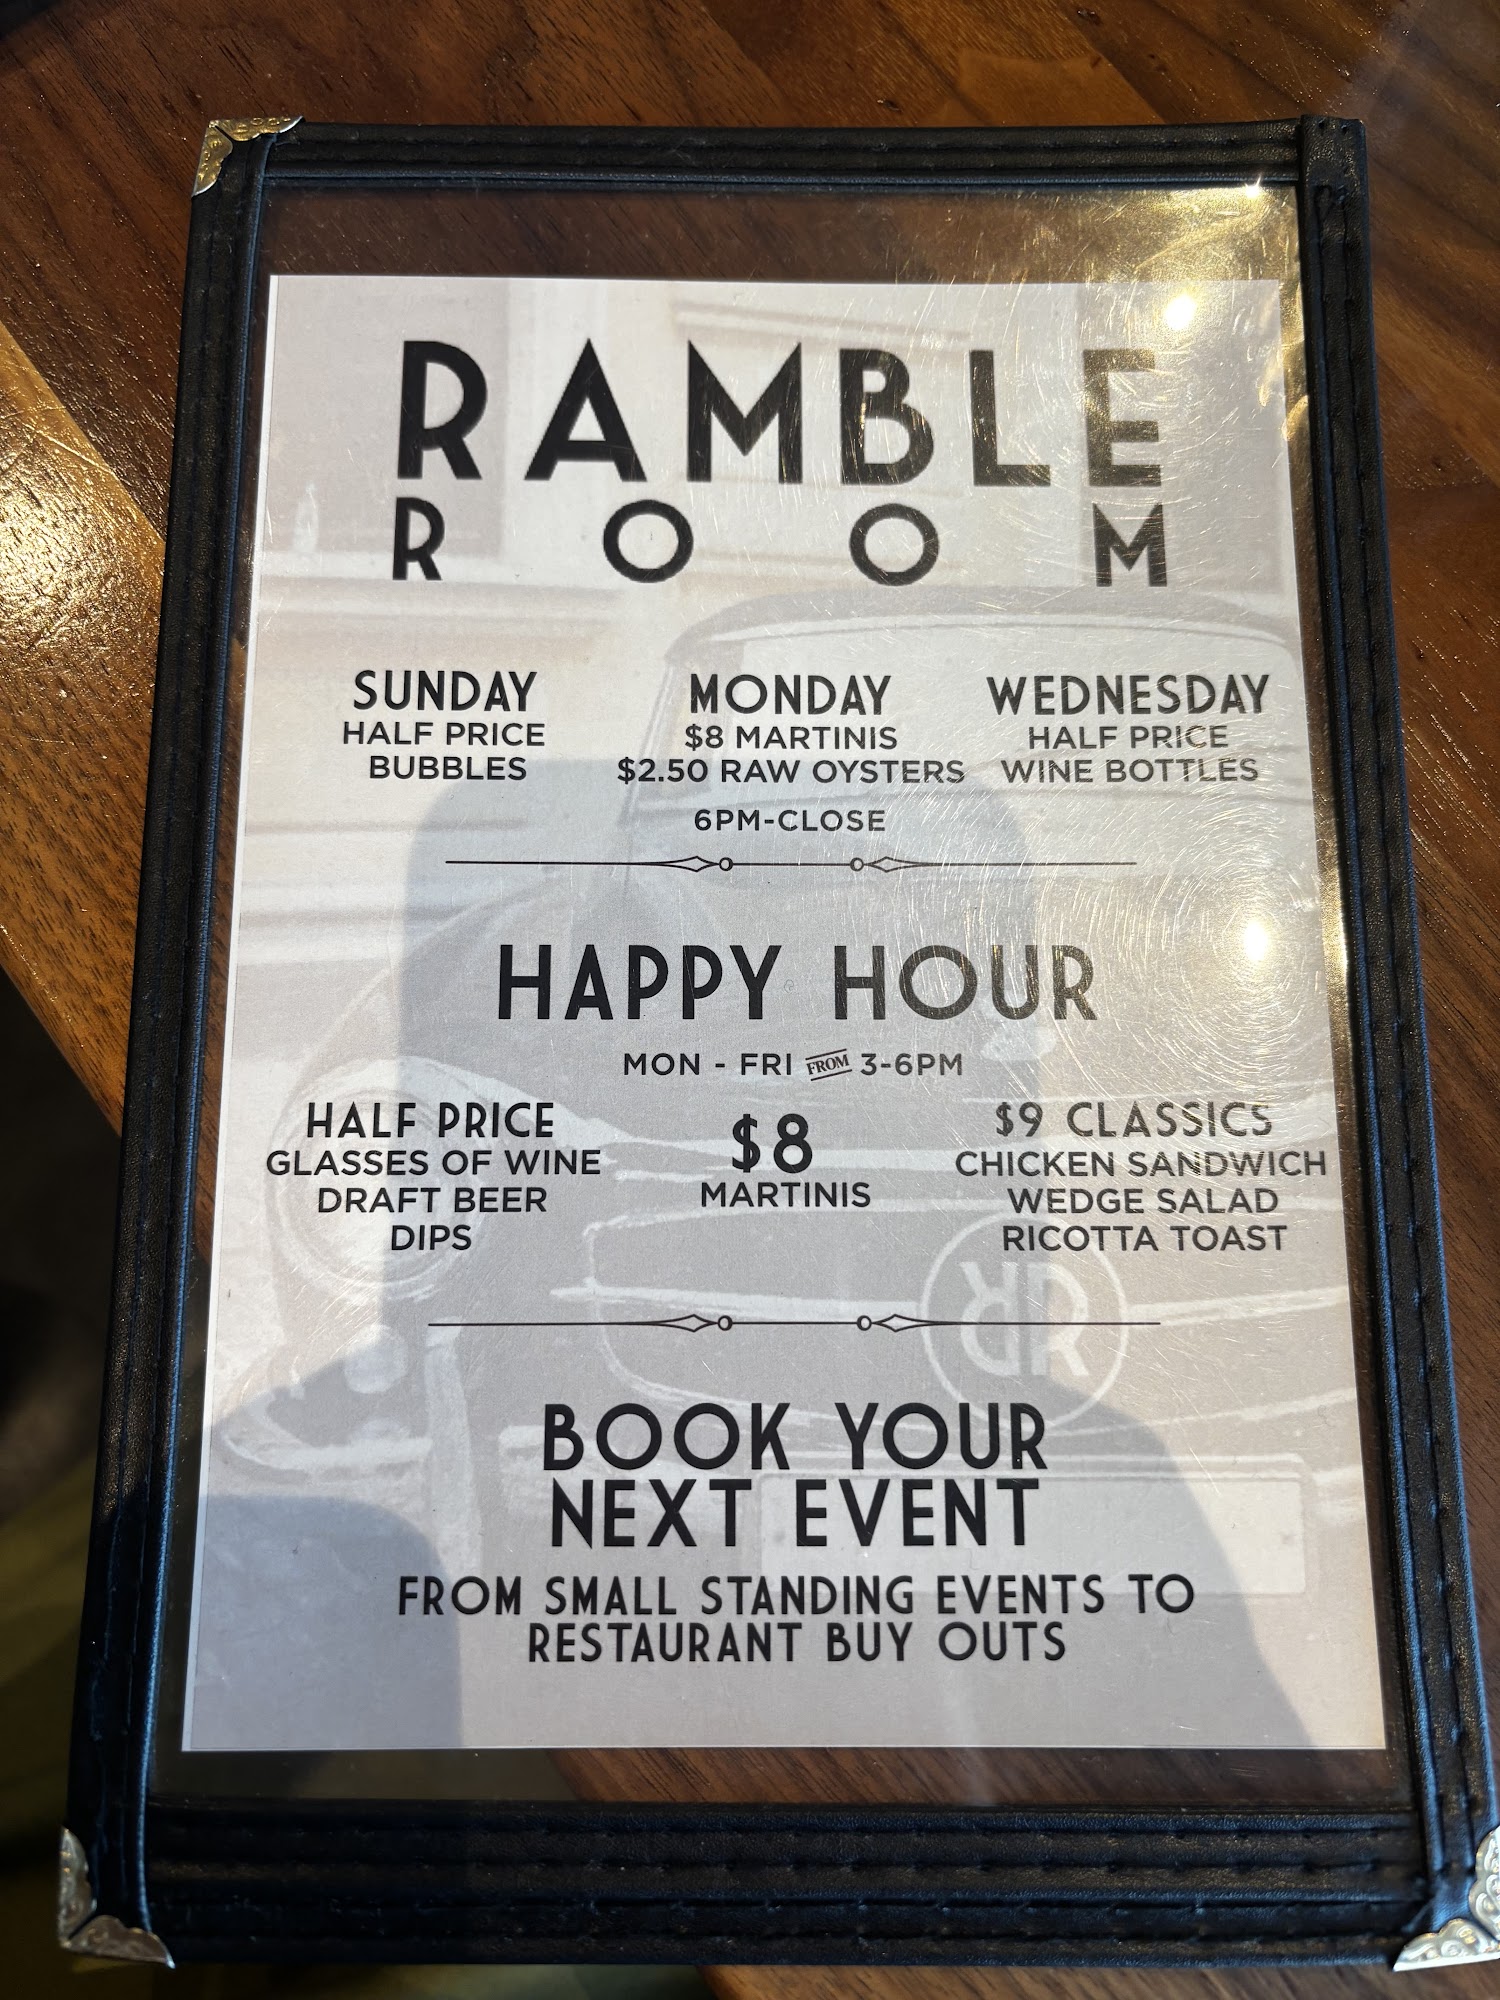 RAMBLE
ROOM
SUNDAY
HALF PRICE
BUBBLES
MONDAY
$8 MARTINIS
$2.50 RAW OYSTERS
6PM-CLOSE
WEDNESDAY
HALF PRICE
WINE BOTTLES
HAPPY HOUR
MON - FRI FROM 3-6PM
HALF PRICE
GLASSES OF WINE
DRAFT BEER
DIPS
$8
MARTINIS
$9 CLASSICS
CHICKEN SANDWICH
WEDGE SALAD
RICOTTA TOAST
RR
BOOK YOUR
NEXT EVENT
FROM SMALL STANDING EVENTS TO
RESTAURANT BUY OUTS